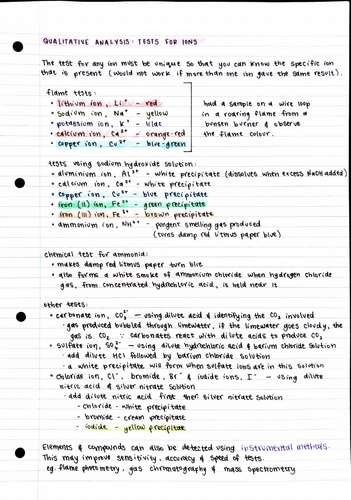 QUALITATIVE ANALYSIS: TESTS FOR IONS
The test for any ion must be unique so that you can know the specific ion
that is present (would not work if more than one ion gave the same result).
flame tests:
• lithium ion, Li⁺ - red
• sodium ion, Na⁺ - yellow
• potassium ion, K⁺ - lilac
• calcium ion, Ca²⁺ - orange-red
• copper ion, Cu²⁺ - blue-green
hold a sample on a wire loop
in a roaring flame from a
bunsen burner & observe
the flame colour.
tests using sodium hydroxide solution:
• aluminium ion, Al³⁺ - white precipitate (dissolves when excess NaOH added)
• calcium ion, Ca²⁺ - white precipitate
• copper ion, Cu²⁺ - blue precipitate
• iron (II) ion, Fe²⁺ - green precipitate
• iron (III) ion, Fe³⁺ - brown precipitate
• ammonium ion, NH⁴⁺ - pungent smelling gas produced
(turns damp red litmus paper blue)
chemical test for ammonia:
• makes damp red litmus paper turn blue
• also forms a white smoke of ammonium chloride when hydrogen chloride
gas, from concentrated hydrochloric acid, is held near it
other tests:
• carbonate ion, CO₃²⁻ - using dilute acid & identifying the CO₂ involved
· gas produced bubbled through limewater, if the limewater goes cloudy, the
gas is CO₂ ∵ carbonates react with dilute acids to produce CO₂
• sulfate ion, SO₄²⁻ - using dilute hydrochloric acid & barium chloride solution
· add dilute HCl followed by barium chloride solution
· a white precipitate will form when sulfate ions are in this solution
• chloride ion, Cl⁻, bromide, Br⁻ & iodide ions, I⁻ - using dilute
nitric acid & silver nitrate solution
· add dilute nitric acid first then silver nitrate solution
- chloride - white precipitate
- bromide - cream precipitate
- iodide - yellow precipitate
Elements & compounds can also be detected using instrumental methods.
This may improve sensitivity, accuracy & speed of tests.
eg. flame photometry, gas chromatography & mass spectrometry